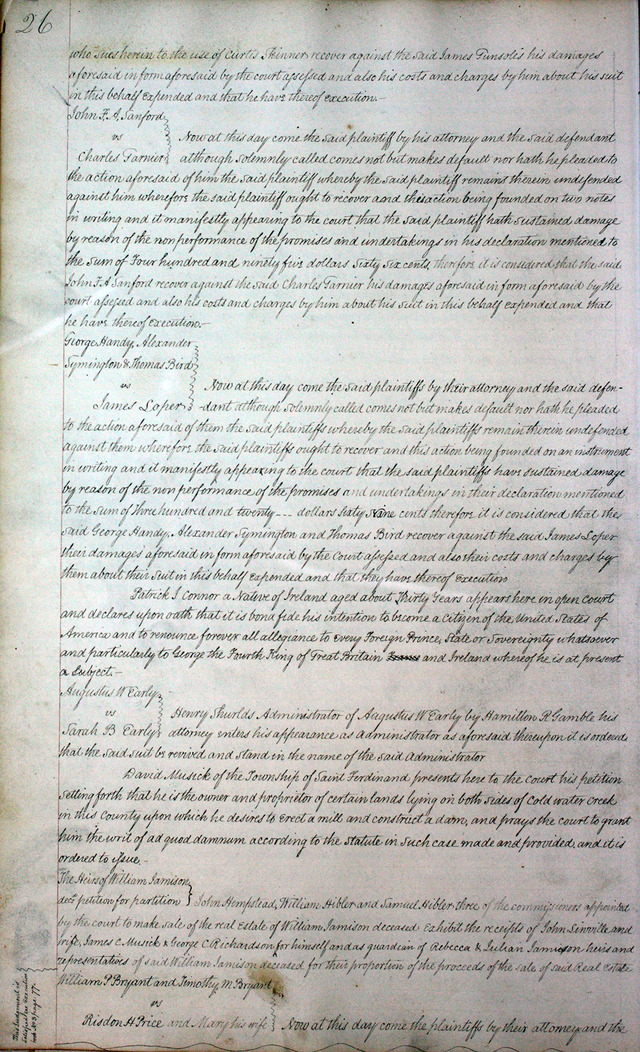 26
who sues herein to the use of Curtis Skinner recover against the said James Gunsolis his damages
aforesaid in form aforesaid by the court assessed and also his costs and charges by him about his suit
in this behalf expended and that he have thereof execution.
John F. A. Sanford
vs
Now at this day come the said plaintiff by his attorney and the said defendant
Charles Garnier although solemnly called comes not but makes default nor hath he pleaded to
the action aforesaid of him the said plaintiff whereby the said plaintiff remains therein undefended
against him wherefore the said plaintiff ought to recover and this action being founded on two notes
in writing and it manifestly appearing to the court that the said plaintiff hath sustained damage
by reason of the non performance of the promises and undertakings in his declaration mentioned to
the sum of Four hundred and ninety five dollars Sixty Six cents, therefore it is considered that the said
John F. A Sanford recover against the said Charles Garnier his damages aforesaid in form aforesaid by the
court assessed and also his costs and charges by him about his suit in this behalf expended and that
he have thereof execution.
George Handy, Alexander
Symington & Thomas Bird
vs Now at this day come the said plaintiffs by their attorney and the said defen-
James Loper -dant although solemnly called comes not but makes default nor hath he pleaded
to the action aforesaid of them the said plaintiffs whereby the said plaintiffs remain therein undefended
against them wherefore the said plaintiffs ought to recover and this action being founded on an instrument
in writing and it manifestly appearing to the court that the said plaintiffs have sustained damage
by reason of the non performance of the promises and undertakings in their declaration mentioned
to the sum of three hundred and twenty --- dollars Sixty Nine cents therefore it is considered that the
said George Handy, Alexander Symington and Thomas Bird recover against the said James Loper
their damages aforesaid in form aforesaid by the Court assessed and also their costs and charges by
them about their suit in this behalf expended and that they have thereof execution
Patrick I Connor a Native of Ireland aged about Thirty Years appears here in open court
and declares upon oath that it is bona fide his intention to become a citizen of the United States of
America and to renounce forever all allegiance to every Foreign Prince, State or Sovereignty whatsoever
and particularly to George the Fourth King of Great Britain and Ireland whereof he is at present
a Subject.-
Augustus W Early
vs Henry Shurlds Administrator of Augustus W Early by Hamilton R Gamble his
Sarah B Early attorney enters his appearance as Administrator as aforesaid thereupon it is ordered
that the said suit be revived and stand in the name of the said Administrator
David Musick of the Township of Saint Ferdinand presents here to the court his petition
setting forth that he is the owner and proprietor of certain lands lying on both sides of Cold water creek
in this County upon which he desires to erect a mill and construct a dam, and prays the court to grant
him the writ of ad quod damnum according to the statute in such case made and provided, and it is
ordered to issue.
The Heirs of William Jamison
decd. petition for partition John Hempstead, William Hibler and Samuel Hibler three of the commissioners appointed
by the court to make sale of the real estate of William Jamison deceased exhibit the receipts of John Linville and
wife, James C. Musick & George C Richardson for himself and as guardian of Rebecca & Julian Jamison heirs and
representatives of said William Jamison deceased for their proportion of the proceeds of the sale of said Real Estate
William P Bryant and Timothy M. Bryant
vs
Risdon H Price and Mary his wife Now at this day come the plaintiffs by their attorney and the
This Judgment is